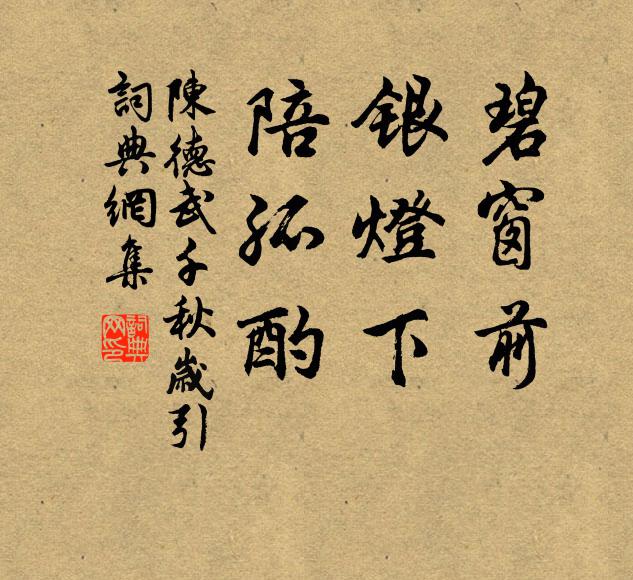 碧窗前
銀燈下
陪孤酌
陳德武千秋歲引
詞典網集
詞典網印